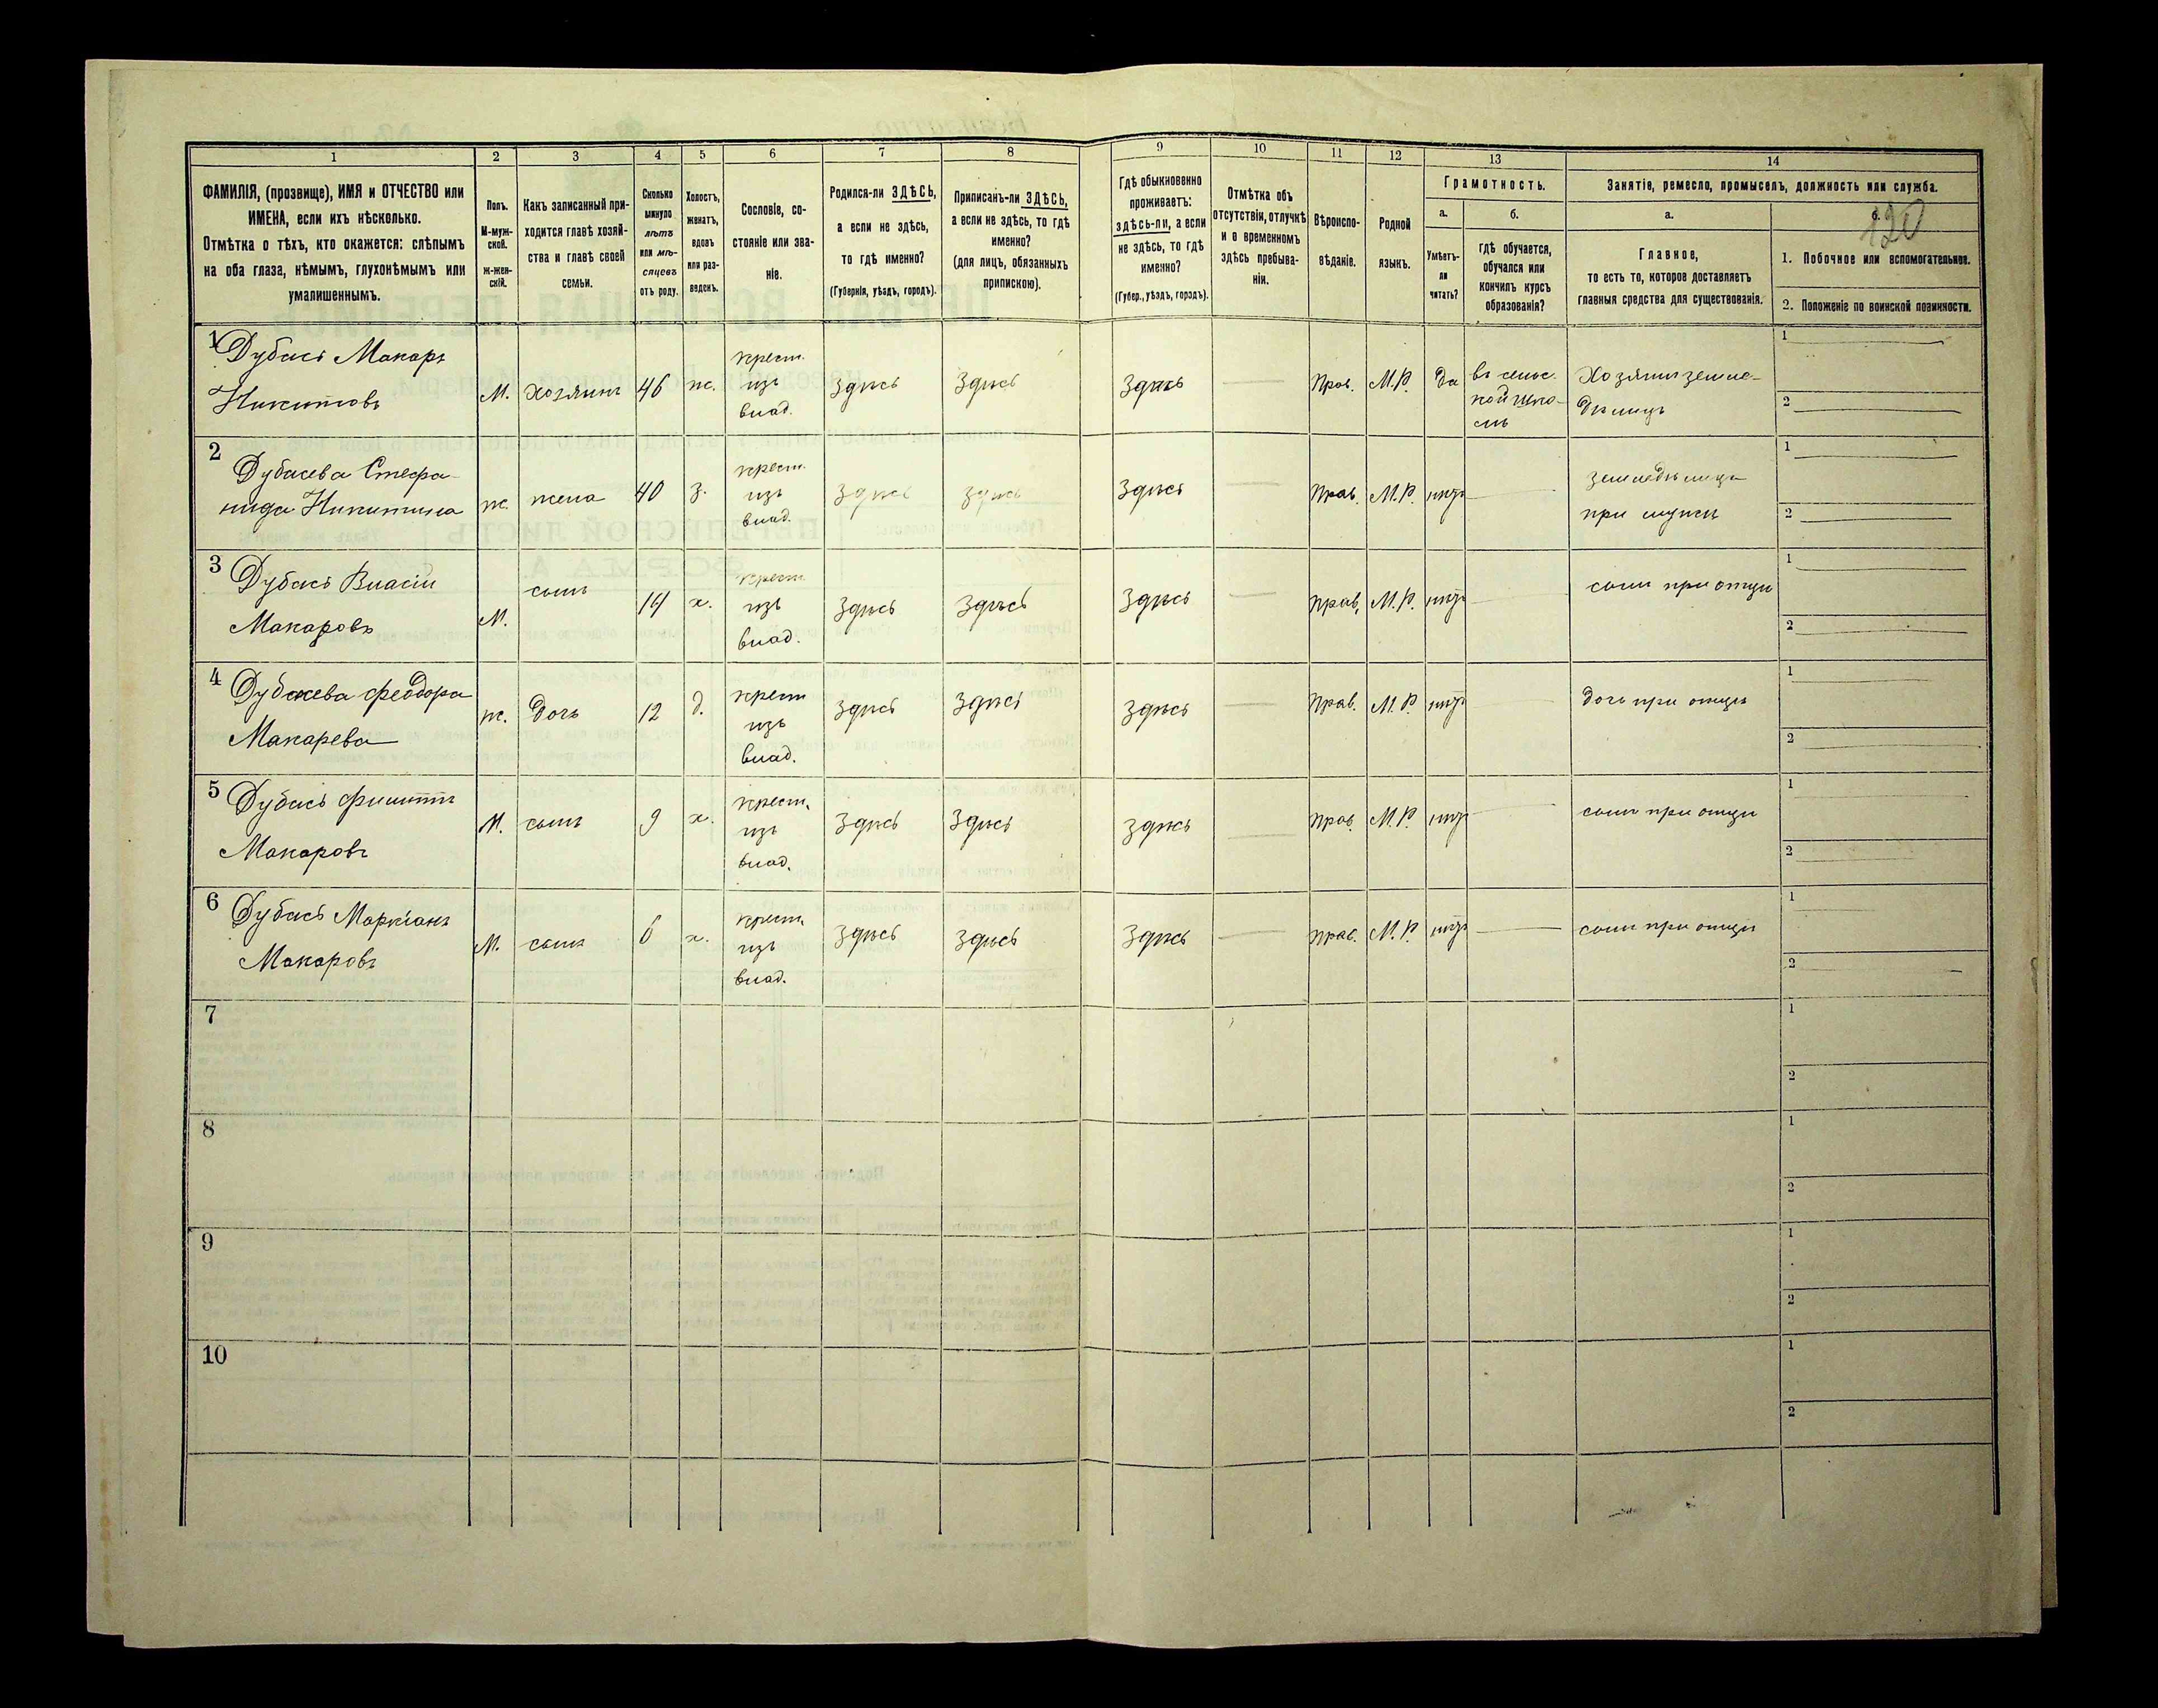 1 2 3 4 5 6 7 8 9 10 11 12 13 14
ФАМИЛІЯ, (прозвище), ИМЯ и ОТЧЕСТВО или
ИМЕНА, если ихъ нѣсколько.
Отмѣтка о тѣхъ, кто окажется: слѣпымъ
на оба глаза, нѣмымъ, глухонѣмымъ или
умалишеннымъ.
Полъ.
М-муж-
ской.
ж-жен-
скій.
Какъ записанный при-
ходится главѣ хозяй-
ства и главѣ своей
семьи.
Сколько
минуло
лѣтъ
или мѣ-
сяцевъ
отъ роду.
Холостъ,
женатъ,
вдовъ
или раз-
веденъ.
Сословіе, со-
стояніе или зва-
ніе.
Родился-ли ЗДѢСЬ,
а если не здѣсь,
то гдѣ именно?
(Губернія, уѣздъ, городъ).
Приписанъ-ли ЗДѢСЬ,
а если не здѣсь, то гдѣ
именно?
(для лицъ, обязанныхъ
припискою).
Гдѣ обыкновенно
проживаетъ:
здѣсь-ли, а если
не здѣсь, то гдѣ
именно?
(Губер., уѣздъ, городъ).
Отмѣтка объ
отсутствіи, отлучкѣ
и о временномъ
здѣсь пребыва-
ніи.
Вѣроиспо-
вѣданіе.
Родной
языкъ.
Грамотность.
а.
Умѣетъ-
ли
читать?
б.
гдѣ обучается,
обучался или
кончилъ курсъ
образованія?
Занятіе, ремесло, промыселъ, должность или служба.
а.
Главное,
то есть то, которое доставляетъ
главныя средства для существованія.
б.
120
1. Побочное или вспомогательное.
2. Положеніе по воинской повинности.
1
Дубасъ Макаръ
Никитовъ
М. хозяинъ 46 ж.
крест.
изъ
влад.
Здѣсь Здѣсь Здѣсь Прав. М.Р. да
въ сельс.
кой шко-
лѣ
Хозяинъ земле-
дѣлецъ
1
2
2
Дубасева Стефа-
нида Никитина
ж. жена 40 з.
крест.
изъ
влад.
Здѣсь Здѣсь Здѣсь Прав. М.Р. нѣтъ
земледѣлица
при мужѣ
1
2
3
Дубасъ Власій
Макаровъ
М. сынъ 14 х.
крест.
изъ
влад.
Здѣсь Здѣсь Здѣсь Прав. М.Р. нѣтъ
сынъ при отцѣ
1
2
4
Дубасева Феодора
Макарева
ж. дочь 12 д.
крест
изъ
влад.
Здѣсь Здѣсь Здѣсь Прав. М.Р. нѣтъ
дочь при отцѣ
1
2
5
Дубасъ Филиппъ
Макаровъ
М. сынъ 9 х.
крест.
изъ
влад.
Здѣсь Здѣсь Здѣсь Прав. М.Р. нѣтъ
сынъ при отцѣ
1
2
6
Дубасъ Маркіанъ
Макаровъ
М. сынъ 6 х.
крест.
изъ
влад.
Здѣсь Здѣсь Здѣсь Прав. М.Р. нѣтъ
сынъ при отцѣ
1
2
7
1
2
8
1
2
9
1
2
10
1
2